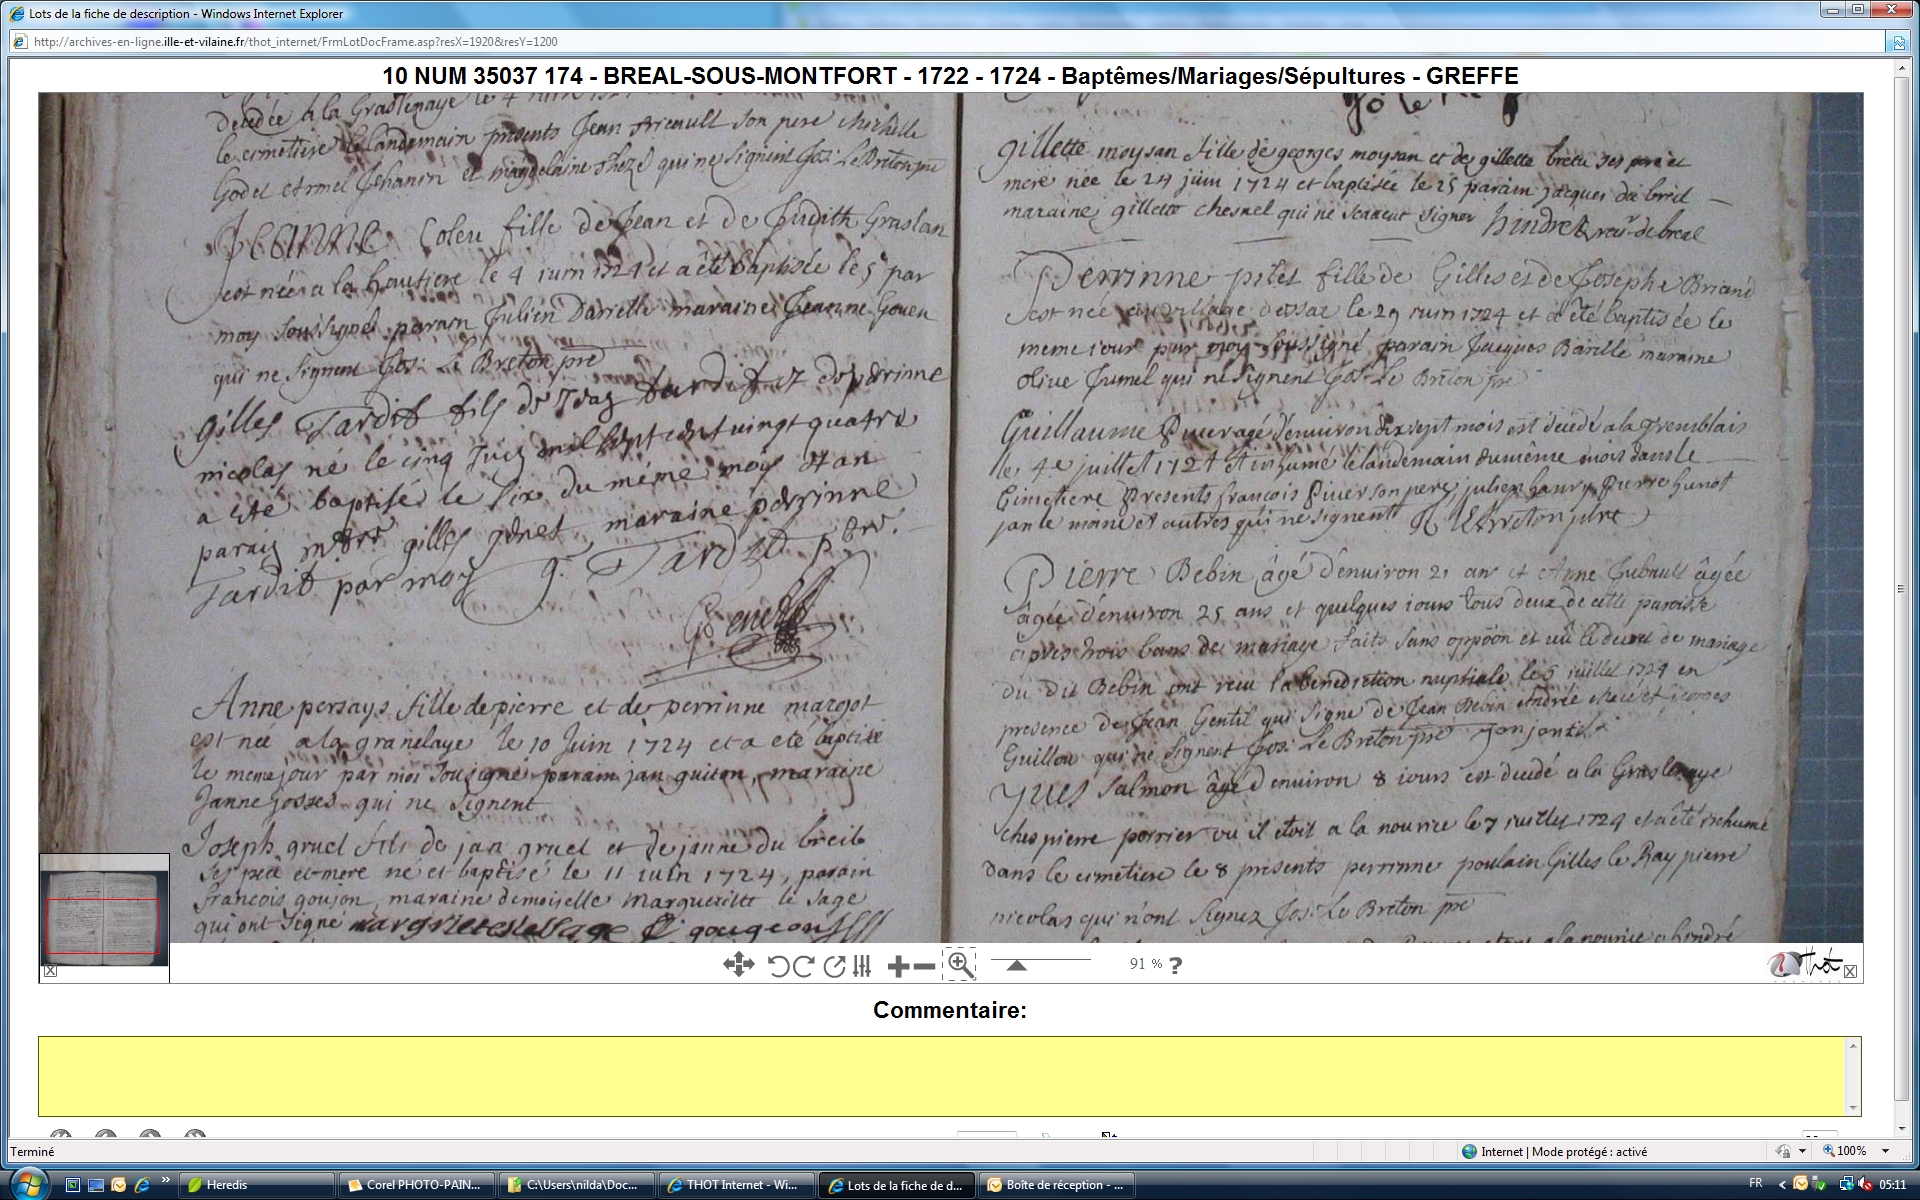 Lots de la fiche de description - Windows Internet Explorer
http://archives-en-ligne.ille-et-vilaine.fr/thot_internet/FrmLotDocFrame.asp?resX=1920&resY=1200
10 NUM 35037 174 - BREAL-SOUS-MONTFORT - 1722 - 1724 - Baptêmes/Mariages/Sépultures - GREFFE
decedée a la Graslenaye le 4
le cimetiere le landemain présents Jean son pere michelle
Godet Armel Jehanin et magdelaine qui ne signent Jos: Le Breton pre
Jeanne Coleu fille de Jean et de Judith Graslan
est née a la hautiere le 4 iuin 1724 et a êté baptisée le 5e par
moy soussigné parain Julien Darielle maraine Jeanne Goven
qui ne signent Jos: Le Breton pre
gilles Tardif fils de Tardif et de perrinne
nicolas né le cinq mil sept cent vingt quatre
a été baptisé le six du méme moys et an
parain gilles maraine perrinne
Tardif par moy g. Tardif
Anne persays fille de pierre et de perrinne margot
est née a la granelaye le 10 Juin 1724 et a eté baptisée
le meme jour par moi sousigné parain jan guiton, maraine
Janne josses qui ne signent
Joseph gruel fils de jan gruel et de janne du breil
ses pere et mere né et baptisé le 11 iuin 1724, parain
francois goujon, maraine demoiselle Margueritte le sage
qui ont signé margrite le sage gougeon
gillette moysan fille de georges moysan et de gillette bretu ses pere et
mere née le 24 juin 1724 et baptisée le 25 parain jacques du breil
maraine gillette chesnel qui ne scavent signer hindré de breal
Perrinne pilet fille de Gilles et de Josephe Briand
est née au village dessac le 29 iuin 1724 et a êté baptisée le
meme iour par moy soussigné parain Jacques Barille maraine
olive Jumel qui ne signent Jos: Le Breton pre
Guillaume Piver agé d'environ dix sept mois est décédé a la Tremblais
le 4e juillet 1724 et inhumé le landemain du même mois dans le
Cimetiere Presents francois Piver son pere, julien haury, Pierre hunot
jan le moine et autres qui ne signent Le Breton pre
Pierre Bebin âgé d'environ 21 ans et Anne Jubault âgée
âgée d'environ 25 ans et quelques iours tous deux de cette paroisse
apres trois bans de mariage faits sans oppôon et vû le decret de mariage
du dit Bebin ont recu la benediction nuptiale le 6 juillet 1724 en
presence de Jean Gentil qui signe de Jean Bebin André
Guillou qui ne signent Jos: Le Breton pre
Yves Salmon âgé d'environ 8 iours est decedé a la Graslenaye
ches pierre porrier ou il étoit a la nourice le 7 iuillet 1724 et a êté inhumé
dans le cimetiere le 8 présents perrinne poulain Gilles le Ray pierre
nicolas qui n'ont signez Jos: Le Breton pre
a la nourice
91 %
?
Thot
Commentaire:
Terminé
Internet | Mode protégé : activé
100%
Heredis
Corel PHOTO-PAIN...
C:\Users\nilda\Doc...
THOT Internet - Wi...
Lots de la fiche de d...
Boîte de réception - ...
FR
05:11